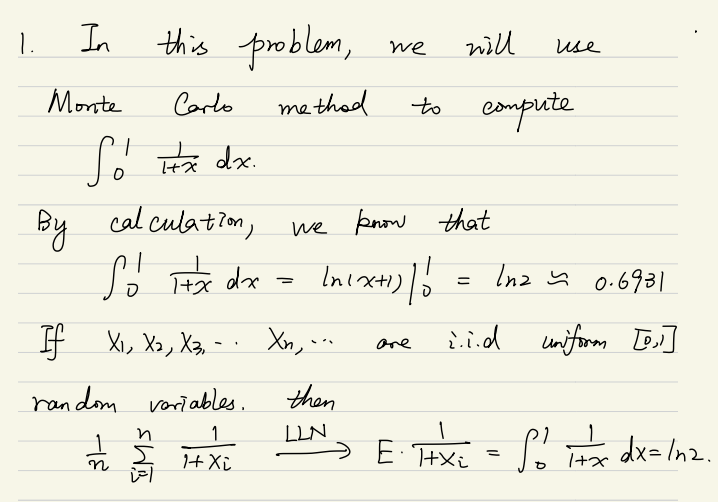 1. In this problem, we will use
Monte Carlo method to compute
∫₀¹ 1/(1+x) dx.
By calculation, we know that
∫₀¹ 1/(1+x) dx = ln(x+1)|₀¹ = ln2 ≈ 0.6931
If X₁, X₂, X₃, .. Xₙ, ... are i.i.d uniform [0,1]
random variables. then
1/n ∑ᵢ₌₁ⁿ 1/(1+Xᵢ) —LLN→ E· 1/(1+Xᵢ) = ∫₀¹ 1/(1+x) dx = ln2.